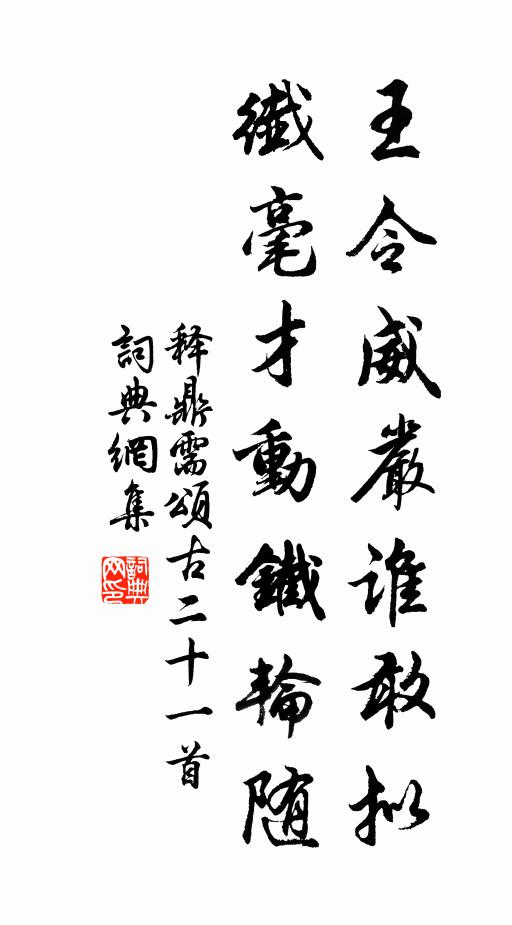 王令威嚴誰敢拟
纖毫才動鐵輪随
释鼎需頌古二十一首
詞典網集
詞典网印